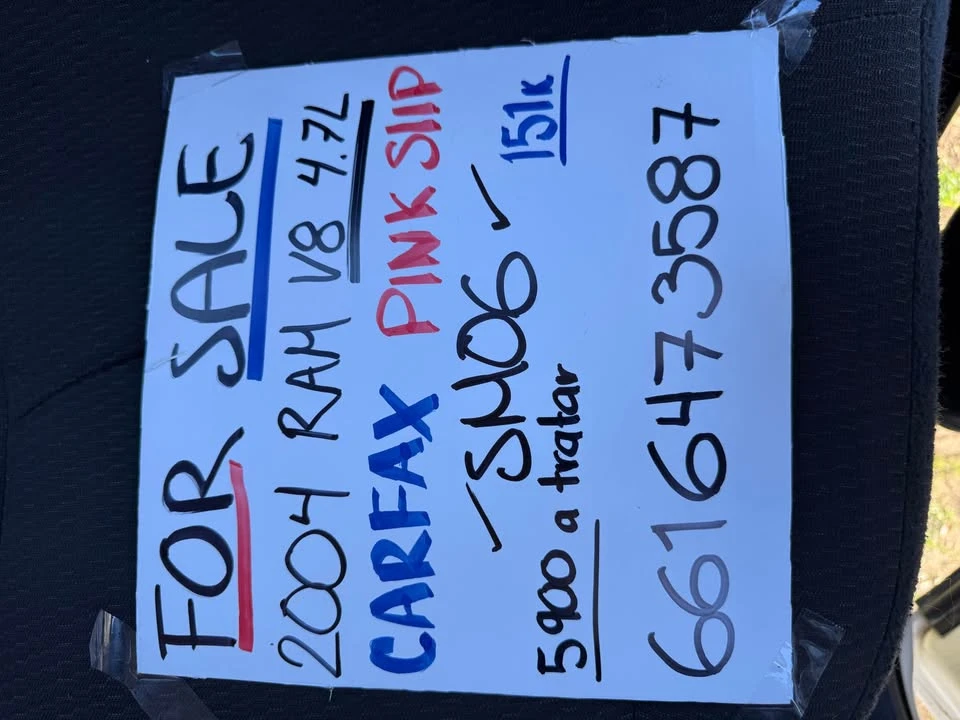 FOR SALE
2004 RAM V8 4.7L
CARFAX PINK SlIP
✓ SMOG ✓
5900 a tratar 151k
6616473587